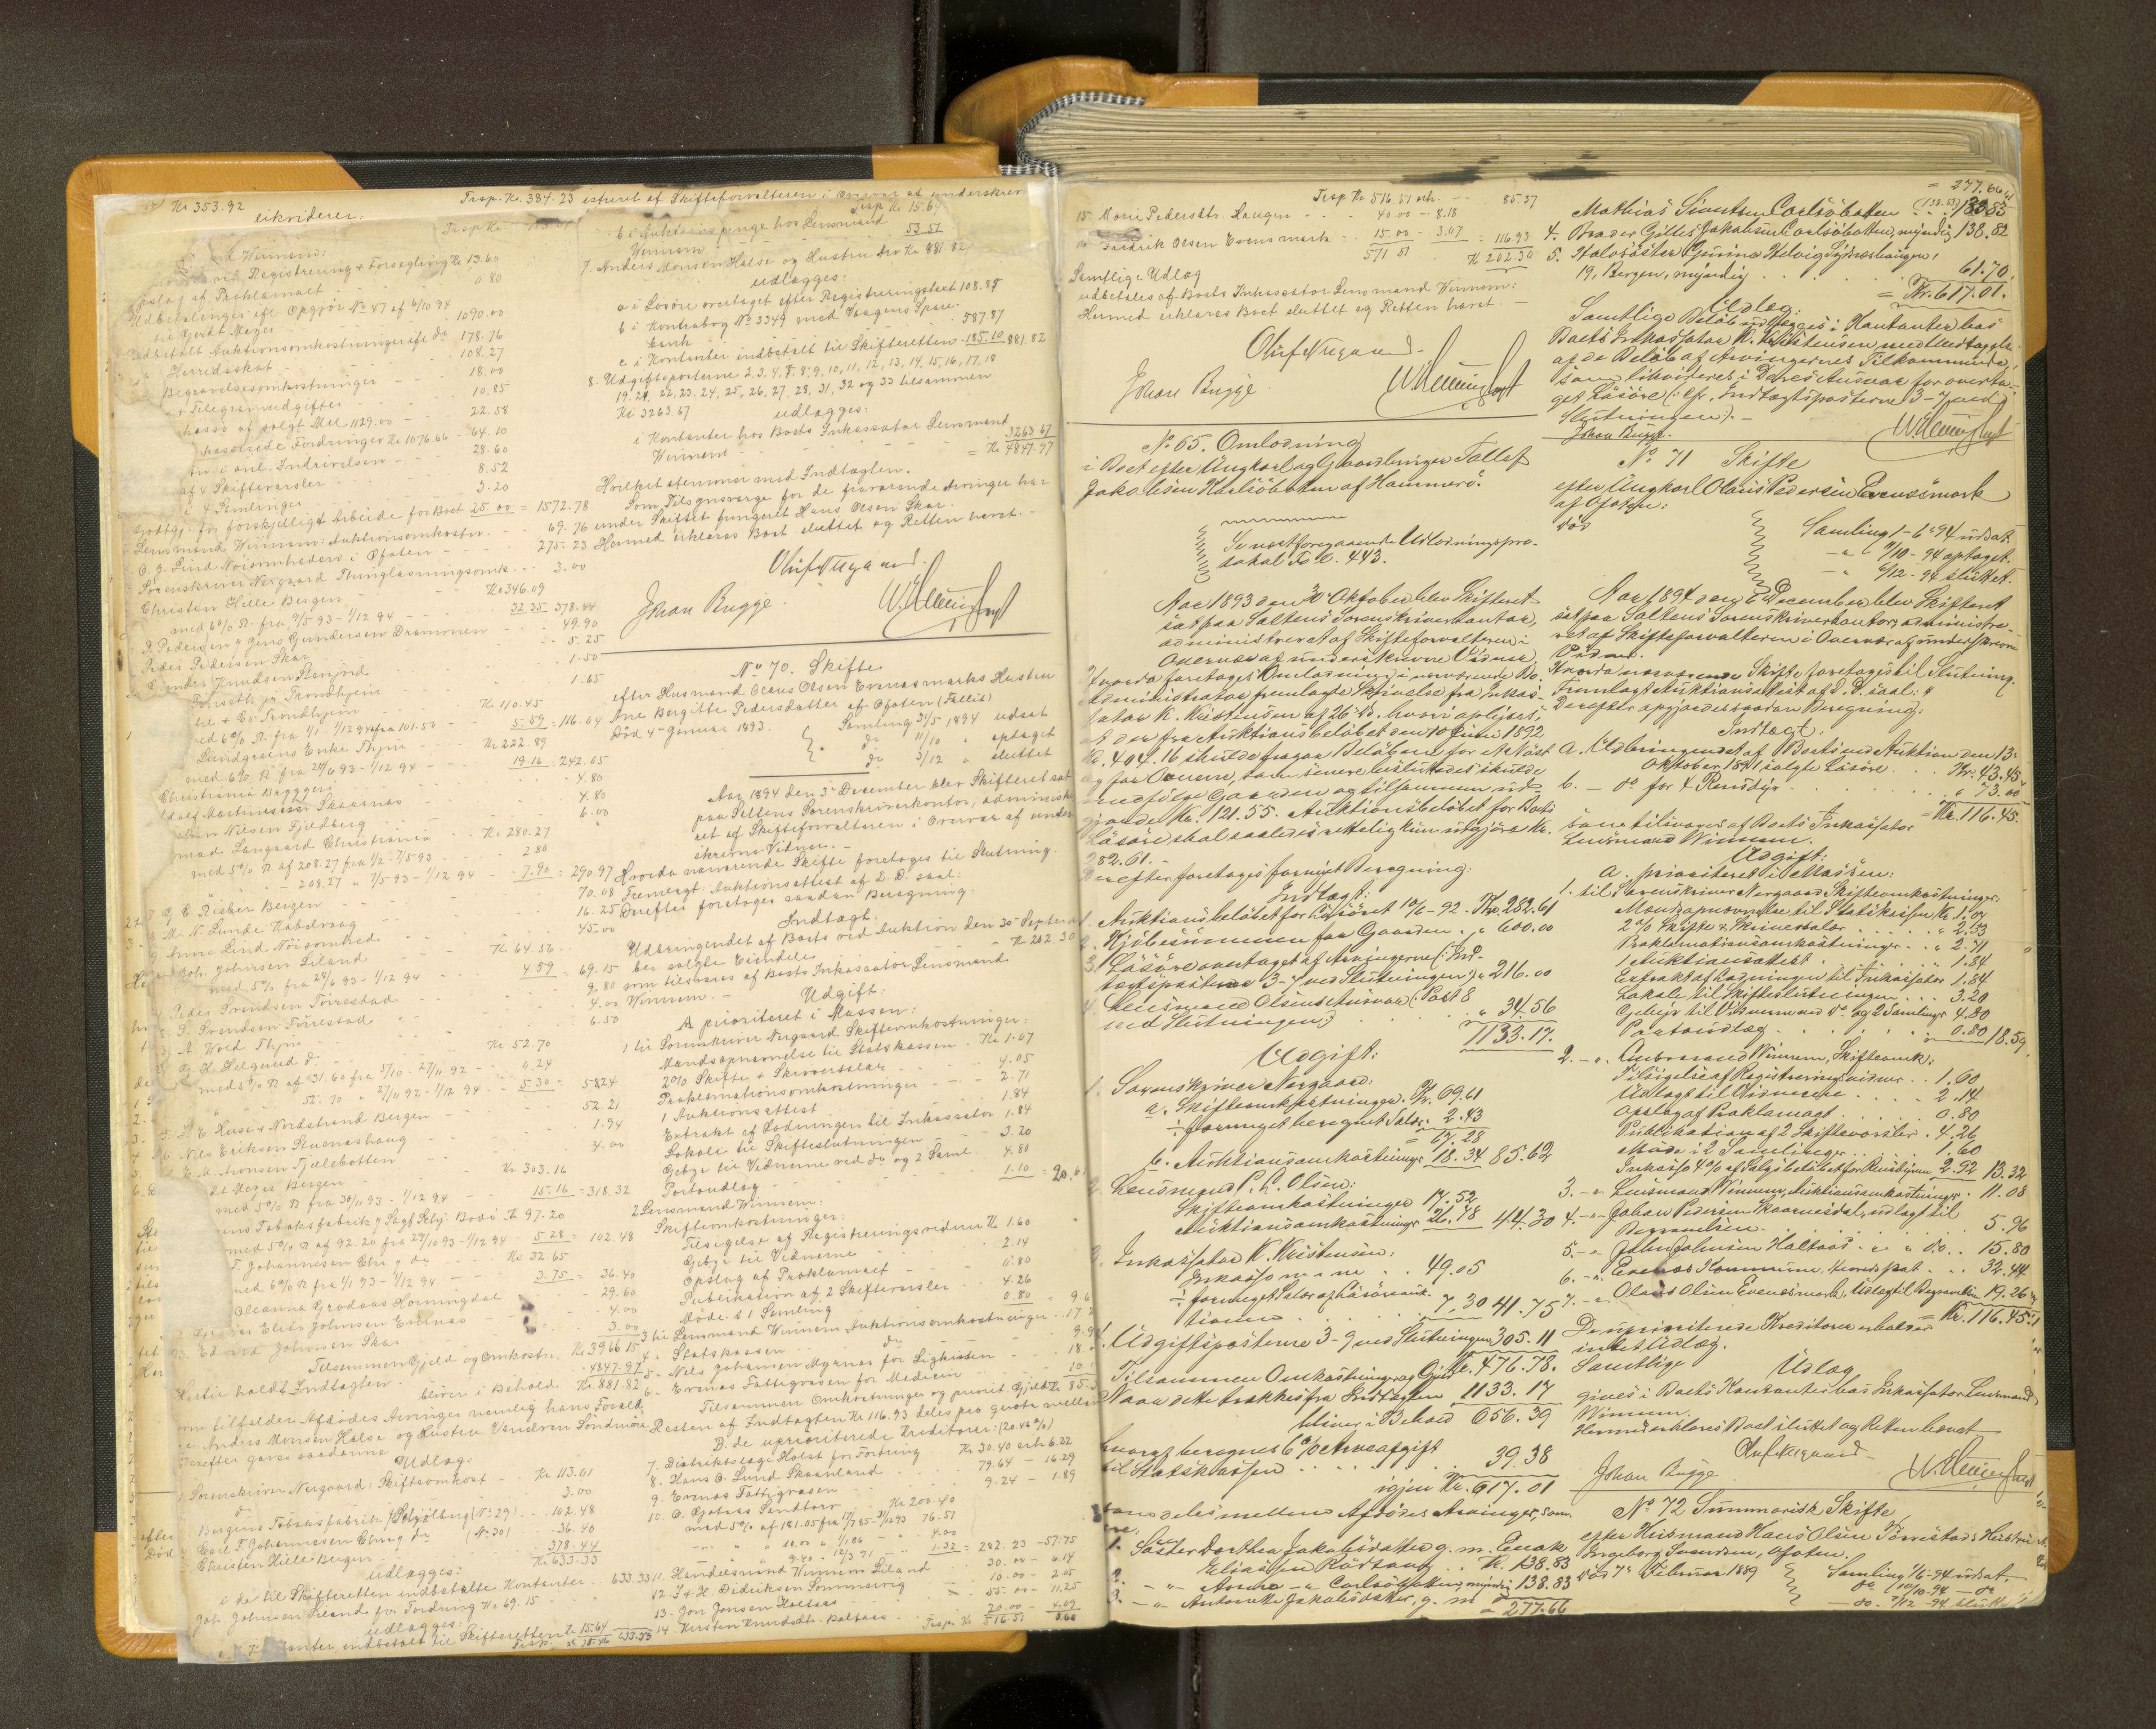 Kr 353.92
likviderer:
Trsp. Kr. 384.23 isteret af Skifteforvalteren i Overvær af underskrev
Winnem:
Registrering & Forsegling Kr 13.60
Opslag af Proklamaet - - 0.80
Udbetalinger ifr. Opgjør No 47 af 6/10 94
til Gerdt Meyer - - 1090.00
Udbetalt Auktionsomkostninger ifr do 178.76
Herredsskat - - 108.27
Begravelsesomkostninger - - 18.00
Telegramudgifter - - 10.85
Inkasso af solgt Mel 1129.00 - 22.58
inkasserede Fordringer Kr 1076.66 - 64.10
i anl. Inddrivelsen - - 28.60
af 4 Skiftevarsler - - 8.52
i 4 Samlinger - - 3.20
Godtgj. for forskjelligt Arbeide for Boet 25.00 = 1572.78
Lensmand Winnem: Auktionsomkostn. - - 69.76
O. J. Lind Noisomheden i Ofoten - - 275.23
Sorenskriver Nergaard Thinglæsningsomk. - 3.00
Christen Hille Bergen - - Kr 346.09
med 6% R. fra 9/5 93 - 1/12 94 - 32.35 378.44
P. Pedersen & Jens Gundersen Drammen - - 49.90
Peder Pedersen Skar - - 5.25
Knudsen Stenjord - - 1.50
Forseth pr Trondhjem - - 1.65
& Co Trondhjem - - Kr 110.45
med 6% R. fra 1/1 - 1/12 94 fra 101.50 - 5.59 = 116.04
Lundgreens Enke Thjem - - Kr 222.89
med 6% R fra 24/6 93 - 1/12 94 - - 19.16 = 242.05
Christiania Bryggeri - - 4.80
Adolf Martinussen Skaarnæs - - 4.80
Nilsen Fjeldberg - - 6.00
Langaard Christiania - - Kr 280.27
med 5% R af 208.27 fra 1/2 - 7/5 93 - - 2.80
- 208.27 " 7/5 93 - 1/12 94 - - 7.90 = 290.97
G. E. Risøen Bergen - - 70.08
M. N. Lunde Kabelvaag - - 16.25
Anna Lind Noisomhed - - 45.00
Joh. Johnsen Liland - - Kr 64.56
med 5% fra 28/6 93 - 1/12 94 - - 4.59 = 69.15
Peder Svendsen Tørrestad - - 9.80
S. Svendsen Tørrestad - - 4.00
A. Vord Thjm - - 6.50
O. H. Helgerud do - - Kr 52.70
med 5% R af 31.60 fra 5/10 - 27/11 92 - - 0.24
" 52.70 " 27/11 92 - 1/12 94 - - 5.30 = 58.24
E. Huse & Nordstrand Bergen - - 52.21
Nils Eriksen Stuenæshaug - - 1.94
E. M. Aronsen Fjælebotten - - 4.00
dt Meyer Bergen - - Kr 303.16
med 5% R fra 30/11 93 - 1/12 94 - - 15.16 = 318.32
Tobaksfabrik Bodø Kr 97.20
med 5% R af 92.20 fra 27/10 93 - 1/12 94 - 5.28 = 102.48
T. Johannesen Ehrg do - - Kr 32.65
med 6% R fra 1/1 93 - 1/12 94 - - 3.75 = 36.40
Oleanna Grødaas Horningdal - - 29.60
Elias Johnsen Evenæs - - 4.00
Edvard Johnsen Skar - - 3.00
Tilsammen Gjeld og Omkostn. Kr 3966.15
Hertil holdt Indtægten - - 4847.97
bliver i Behold Kr 881.82
som tilfalder Afdødes Arvinger nemlig hans Foræld
re Anders Monsen Halse og Hustru Vandven Søndmøre
Derefter gaves saadanne
Udlæg:
Sorenskriver Nergaard: Skifteomkost - - Kr 113.01
do - - 3.00
Bergens Tobaksfabrik (No 29) - - 102.48
Carl T. Johannesen Ehrg do (No 30) - 36.40
Christen Hille Bergen - - 378.44
Kr 633.33
udlægges:
i de til Skifteretten indbetalte Kontanter - 633.33
Joh. Johnsen Liland for Fordring Kr 69.15 -
udlægges:
Kontanter indbetalt til Skifteretten Kr 15.64
Trsp. Kr 15.64 633.33
Trsp Kr 15.64
b i Auktionspenge hos Lensmand
Winnem - - 53.51
7. Anders Monsen Halse og Hustru Arv Kr 881.82
udlægges:
a i Løsøre overtaget efter Registreringstaxt 108.85
b i Kontrabog No 3349 med Vaagens Spare-
bank - - 587.87
c i Kontanter indbetalt til Skifteretten - 185.10 881.82
8. Udgiftsposterne 2, 3, 4, 7, 8, 9, 10, 11, 12, 13, 14, 15, 16, 17, 18
19. 21. 22, 23. 24, 25, 26, 27, 28, 31, 32 og 33 tilsammen
Kr 3263.67
udlægges:
i Kontanter hos Boets Inkassator Lensmand
Winnem - - 3263.67
= Kr 4847.97
Hvilket stemmer med Indtægten.
Som Tilsynsværge for de fraværende Arvinger har
under Skiftet fungeret Hans Olsen Skar.
Hermed erklæres Boet sluttet og Retten hævet. -
Oluf Nygaard.
Johan Bugge.
No 70. Skifte
efter Husmand Olaus Olsen Evenæsmarks Hustru
Ane Bergitte Pedersdatter af Ofoten (Fallit)
Død 4de Januar 1893.
Samling 31/5 1894 udsat
do 11/10 " optaget
do 3/12 " sluttet
Aar 1894 den 3die December blev Skifteret sat
paa Saltens Sorenskriverkontor, administre
ret af Skifteforvalteren i Overvær af under
skrevne Vidner. -
Hvorda nærværende Skifte foretoges til Slutning.
Fremlagt: Auktionsattest af D. D. saal:
Derefter foretoges saadan Beregning:
Indtægt.
Udbringendet af Boets ved Auktion den 30te September
ber solgte Eiendele - - Kr 202.30
som tilsvares af Boets Inkassator Lensmand
Winnem. -
Udgift:
A prioriteret i Massen:
1 til Sorenskriver Nergaard Skifteomkostninger:
Mandsopnævnelse til Statskassen - Kr 1.07
2% Skifte & Skriversalær - - 4.05
Proklamationsomkostninger - - 2.71
1 Auktionsattest - - 1.84
Extrakt af Lodningen til Inkassator 1.84
Lokale til Skifteslutningen - - 3.20
Gebyr til Vidnerne ved do og 2 Saml. 4.80
Portoudlæg - - 1.10 = 20.61
2 Lensmand Winnem:
Skifteomkostninger:
Tilsigelse af Registreringsvidner Kr 1.60
Gebyr til Vidnerne - - 2.14
Opslag af Proklamaet - - 0.80
Publikation af 2 Skiftevarsler - - 4.26
Møde i 1 Samling - - 0.80 = 9.6
3 til Lensmand Winnem Auktionsomkostninger - 17.2
4. Statskassen do - - 9.9
5. Nils Johansen Myrnæs for Ligkisten - - 18
6. Evenæs Fattigvæsen for Medicin - - 10
Tilsammen Omkostninger og priorit Gjeld Kr 85.3
Resten af Indtægten Kr 116.93 deles pro quota mellem
B. de uprioriterede Kreditorer: (20.46%)
7. Distriktslæge Holst for Fordring Kr 30.40 erh. 6.22
8. Hans O. Lund Skaanland - 79.64 - 16.29
9. Evenæs Fattigvæsen - - 9.24 - 1.89
10. O. Gjotaas Sandtorv - Kr 200.40
med 5% af 181.05 fra 17/7 85 - 31/12 93 76.51
" " 10.00 " 1/1 86 - " 4.00
" " 9.40 " 12/3 91 - " 1.32 = 282.23 - 57.75
11. Handelsmand Winnem Liland - - 30.00 - 6.14
12. I. & H. Didriksen Sommervig - 10.00 - 2.05
13. Jon Jonsen Holtaas - - 55.00 - 11.25
14. Kirsten Knudsdtr. Holtaas - - 20.00 - 4.09
Trsp. Kr 516.51
Trsp Kr 516.51 erh. - - 85.37
15. Marie Pedersdtr. Haugen - - 40.00 - 8.18
16. Fredrik Olsen Evensmark - - 15.00 - 3.07 = 116.93
571 51 Kr 202.30
Samtlige Udlæg
udbetales af Boets Inkassator Lensmand Winnem:
Hermed erklæres Boet sluttet og Retten hævet. -
Oluf Nygaard.
Johan Bugge.
No 65. Omlodning
i Boet efter Ungkarl og Gaardbruger Tollef
Jakobsen Karlsöbakken af Hammerö.
Se næstforegaaende Udlodningspro-
tokol Fol. 443.
Aar 1893 den 30 Oktober blev Skifteret
sat paa Saltens Sorenskriverkontor,
administreret af Skifteforvalteren i
Overvær af underskrevne Vidner.
Hvorda foretoges Omlodning i nærværende Bo.
Administrator fremlagde Skrivelse fra Inkas-
sator K. Kristensen af 26 ds. hvori oplyses,
at der fra Auktionsbelöbet den 10 Juni 1892
Kr. 404.16 skulde fragaa Belöbene for
som senere besluttedes skulde
medfölge Gaarden og tilsammen ud-
gjorde Kr. 121.55. Auktionsbelöbet for Boets
Lösöre skal saaledes rettelig kun udgjöre Kr.
282.61. -
Derefter foretoges fornyet Beregning:
Indtægt:
1. Auktionsbelöbet for Lösöret 10/6 - 92 - Kr. 282.61
2. Kjöbesummen for Gaarden . " 600.00
3. Lösöre overtaget af Arvingerne (: Ind-
tægtsposterne 3-7 ved Slutningen) " 216.00
4. Lensmand Olsens Ansvar (: Post 8
ved Slutningen:) . . . " 34.56
1133.17.
Udgift:
1. Sorenskriver Nergaard:
a. Skifteomkostninger. Kr. 69.61
÷ formeget beregnet Salær 2.43
= 67.28
b. Auktionsomkostninger 18.34 85.62
2. Lensmand P. C. Olsen:
Skifteomkostninger 17.52
Auktionsomkostninger 26.78 44.30
3. Inkassator K. Kristensen:
Inkasso m. m . . 49.05
÷ formeget Salær af Lösöreauk-
tionen . . . 7.30 41.75
4. Udgiftsposterne 3-9 ved Slutningen 305.11
Tilsammen Omkostninger og Gjeld Kr. 476.78.
Naar dette trækkes fra Indtægten 1133.17
bliver i Behold 656.39
hvoraf beregnes 6% Arveafgift
til Statskassen . . . 39.38
igjen Kr. 617.01
som deles mellem Afdödes Arvinger, som
ere:
1. Söster Dorthea Jakobsdatter g. m. Enok
Eliassen Rörvang . . Kr. 138.83
2. - " - Andrea - " - Carlsöbakken, myndig 138.83
3. - " - Antonette Jakobsdatter, g. m
= 277.66
= 277.66
Mathias Sivertsen Carlsöbakken (138.83) 138.83
4. Broder Gilles Jakobsen Carlsöbakken, myndig 138.82
5. Halvsöster Gurine Helvig Sydneshaugen,
19, Bergen, myndig . . . 61.70.
= Kr. 617.01.
Udlæg:
Samtlige Belöb udlægges i Kontanter hos
Boets Inkassator K. Kristensen, med Undtagelse
af de Beløb af Arvingernes Tilkommende,
som likvideres i Deres Ansvar for overta-
get Lösöre (: cfr. Indtægtsposterne 3-7 ved
Slutningen:). -
Johan Bugge.
No 71 Skifte
efter Ungkarl Olaus Pedersen Evenæsmark
af Ofoten:
död
Samling 1 - 6 " 94 udsat.
- " - 9/10 - 94 optaget.
- " - 6/12 - 94 sluttet.
Aar 1894 den 6 December blev Skifteret
sat paa Saltens Sorenskriverkontor, administre-
ret af Skifteforvalteren i Overvær af underskrevne
Vidner.
Hvorda nærværende Skifte foretoges til Slutning.
Fremlagt Auktionsattest af D. D. saal:
Derefter opgjordes saadan Beregning:
Indtægt.
a. Udbringendet af Boets ved Auktion den 13
Oktober 1891 solgte Lösöre . . Kr. 43.45
b. - do for 4 Rensdyr . . . " 73.00
= Kr. 116.45.
som tilsvares af Boets Inkassator
Lensmand Winnem.
Udgift:
a. prioriteret i Massen:
1. til Sorenskriver Nergaard Skifteomkostninger:
Mandsopnævnelse til Statskassen Kr. 1.07
2% Skifte & Skriversalær . . . " 2.33
Proklamationsomkostninger . . " 2.71
1 Auktionsattest . . . " 1.84
Extrakt af Lodningen til Inkassator 1.84
Lokale til Skifteslutningen . . . 3.20
Gebyr til Vidnerne ved do og 2 Samlinger 4.80
Portoudlæg . . . 0.80 18.59
2. - " - Lensmand Winnem, Skifteomk:
Tilsigelse af Registreringsvidner . . 1.60
Udlagt til Vidnerne . . . 2.14
Opslag af Proklamaet . . . 0.80
Publikation af 2 Skiftevarsler . 4.26
Möde i 2 Samlinger . . . 1.60
Inkasso 4% af Salgsbelöbet for Rensdyrene 2.92 13.32
3. - " - Lensmand Winnem, Auktionsomkostninger . 11.08
4. - " - Johan Pedersen Skaarnesdal, udlagt til
Begravelsen . . . 5.96
5. - " - John Johnsen Holtaas . " " do . . 15.80
6. - " - Evenæs Kommune, Herredsskat . . . 32.44
7. - " - Olaus Olsen Evenesmark, Udlæg til Begravelsen 19.26
= Kr. 116.45
De uprioriterede Kreditorer erholder
intet Udlæg.
Samtlige Udlæg
gives i Boets Kontanter hos Inkassator Lensmand
Winnem.
Hermed erklæres Boet sluttet og Retten hævet
Oluf Nygaard
Johan Bugge
No 72 Summarisk Skifte
efter Husmand Hans Olsen Tørrestads Hustru
Ingeborg Svendsen, Ofoten.
död 7de Februar 1889
Samling 1/6 - 94 udsat.
do 11/10 - 94 - do
- do - 7/12 - 94 sluttet